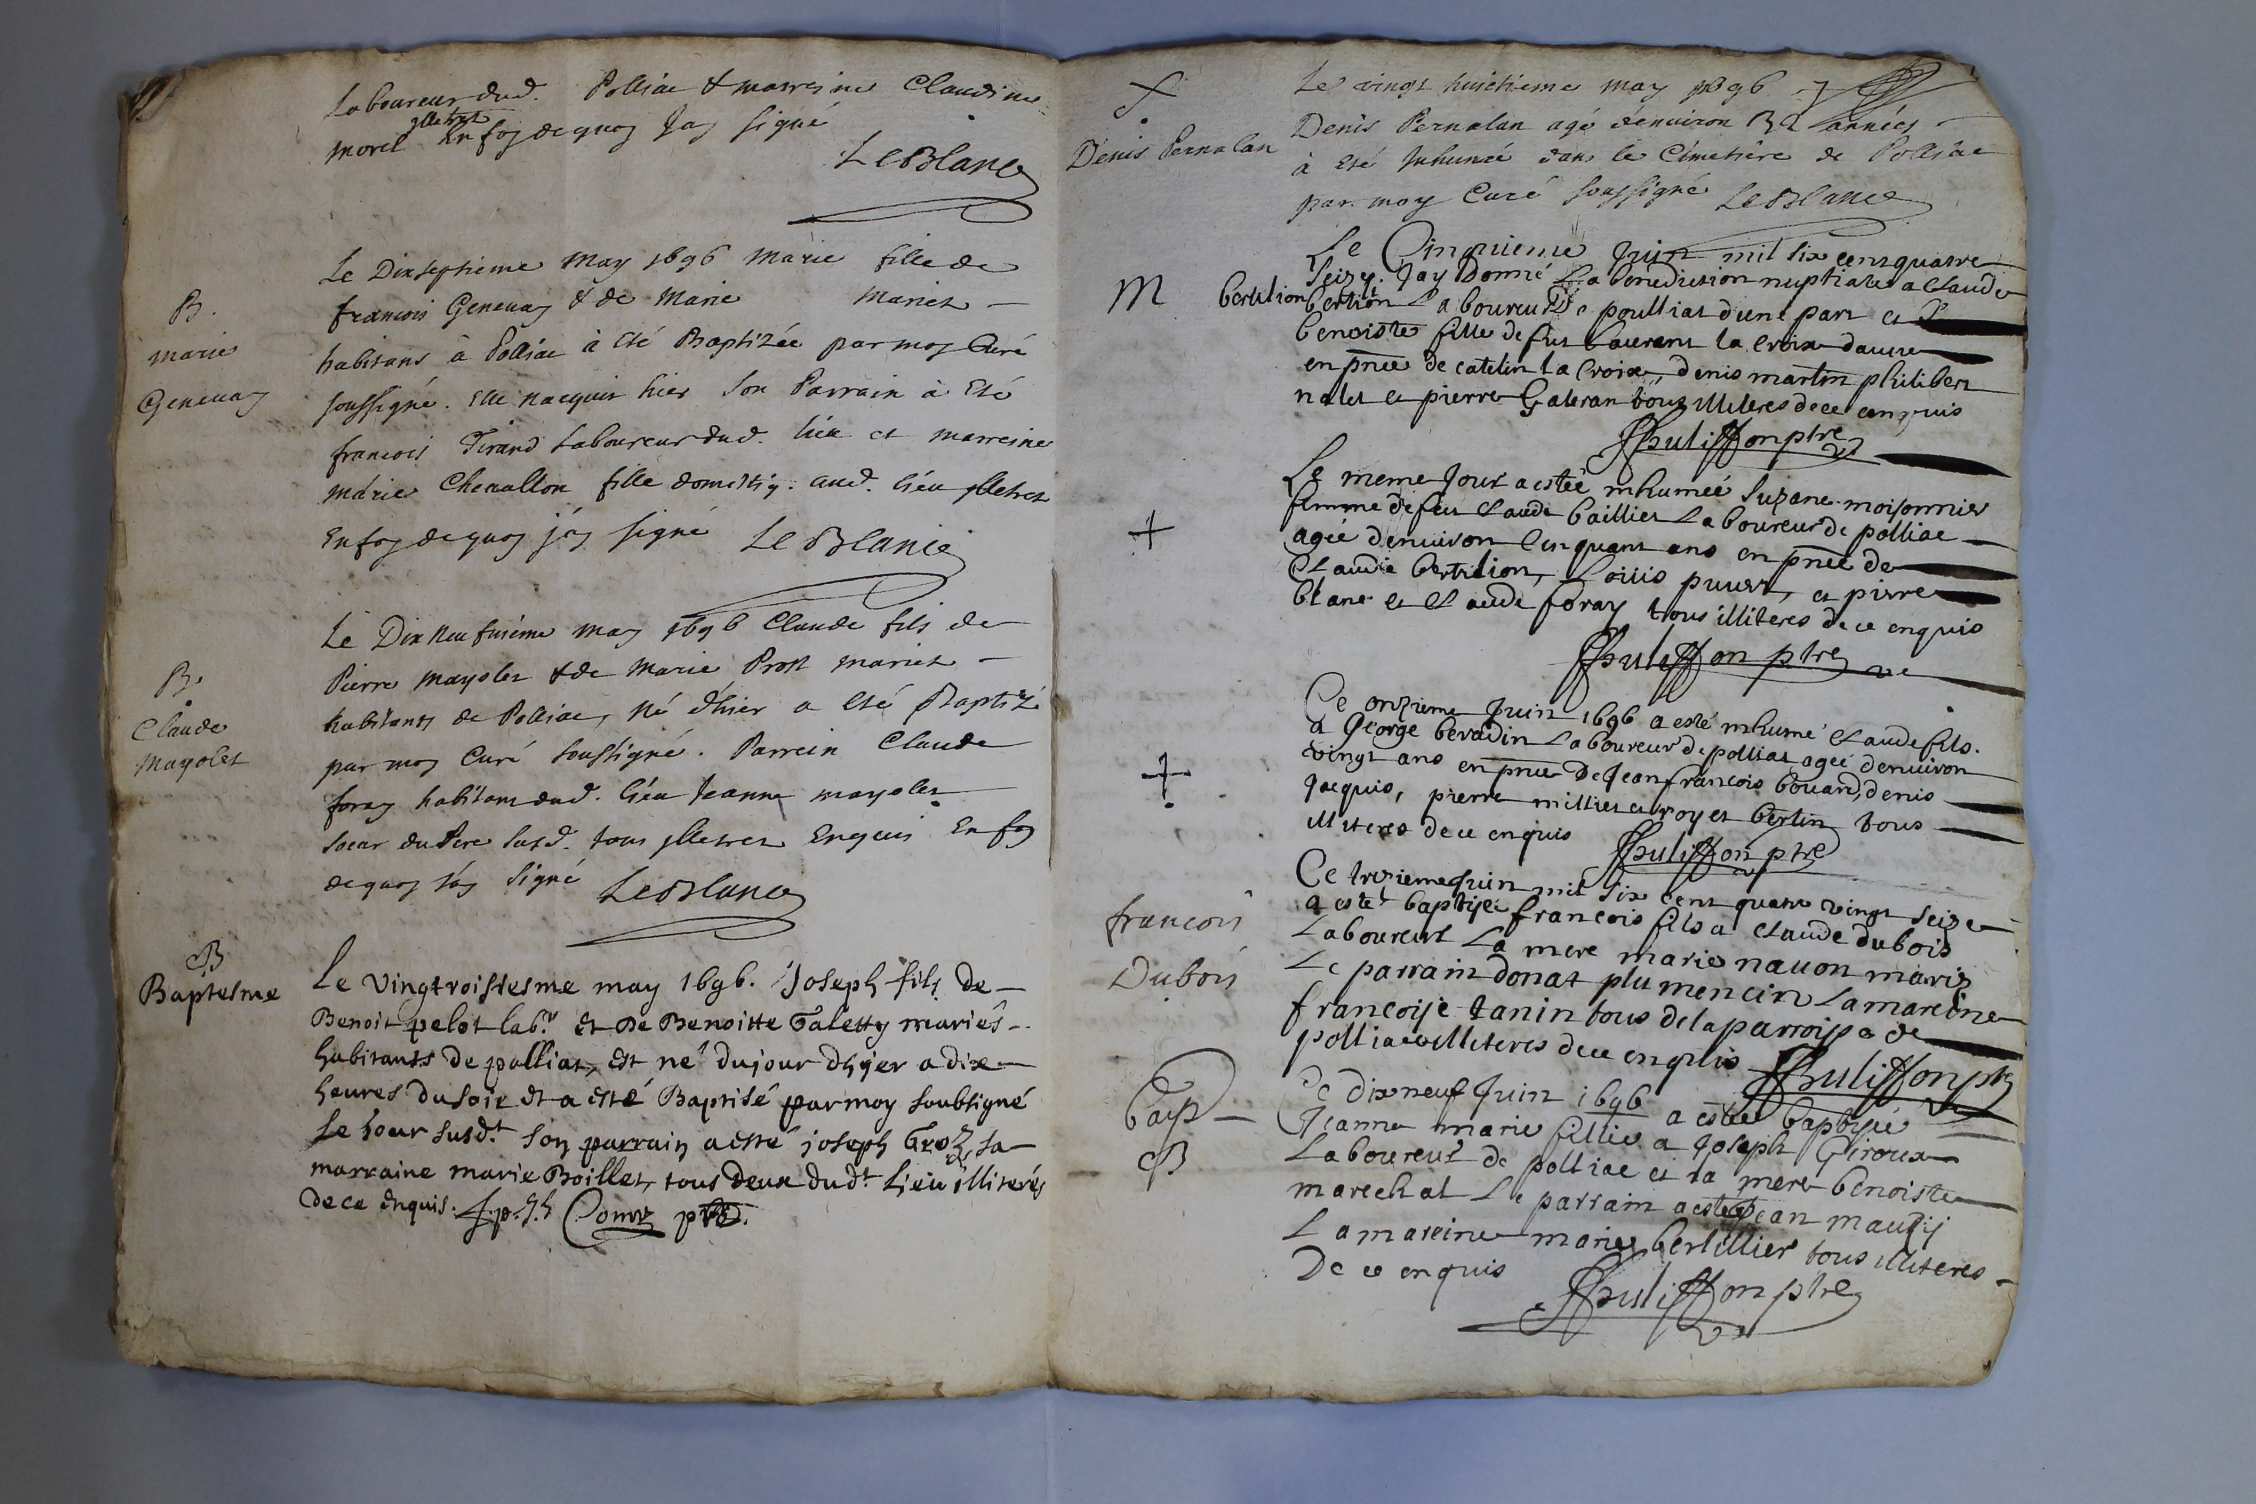 Laboureur dud. Polliac & marreine Claudine
morel illetrez En foy de quoy Jay signé
LeBlanc
B.
marie
Genevay
Le Dixseptieme may 1696 marie fille de
francois Genevay & de Marie mariez
habitans à Polliac à été Baptizée par moy Curé
soussigné. Elle nacquit hier son Parrain à Eté
francois Tirand Laboureur dud. lieu et marreine
marie Chevallon fille domestiq. aud. lieu illetrez
En foy de quoy jáy signé LeBlanc
B.
Claude
Mayolet
Le Dix neufvième may 1696 Claude fils de
Pierre mayolet & de Marie Prost mariez
habitants de Polliac, né d'hier a été Baptizé
par moy Curé soussigné. Parrein Claude
foray habitant dud. lieu Jeanne mayolet
soeur du Pere susd. tous illetrez Enquis En foy
de quoy Jáy signé LeBlanc
B
Baptesme
Le vingtroisiesme may 1696. Joseph fils de
Benoit pelot lab.r et De Benoitte Faletty mariés
habitants de polliat, est né du jour dhyer a dix
heures du soir et a esté Baptisé par moy soubsigné
Le Jour susd.t son parrain a esté joseph Gros, sa
marraine marie Boillet, tous deux dud.t Lieu illiterés
de ce enquis.
Denis Pernalan
Le vingt huictieme may 1696
Denis Pernalan agé dénviron 32 années
à été Inhumé dans le Cimetière de Polliac
par moy Curé soussigné LeBlanc
M bertilion
Le Cinquieme Juin mil six cens quatre
seize. Jay Donné La benediction nuptiale a Claude
bertilion Laboureur De poulliat dune part et D
benoiste fille de feu Laurent la Croix dautre
en pnce de catelin la Croix, denis martin philibert
nalet et pierre Galeran tous illiteres de ce enquis
Shulisson ptre
+
Le meme Jour a estée inhumeé Suzane moisonnier
femme de feu Claude baillier Laboureur de polliac
ageé denuiron Cinquant ans en pnce de
Claudie bertilion, Louis puuert, et pierre
blanc et Claude foray tous illiteres de ce enquis
Shulisson ptre
+
Ce onzieme Juin 1696 a esté inhumé Claude fils
a George beradin Laboureur de polliat ageé denuiron
vingt ans en pnce De Jean francois bouard, denis
Jacquis, pierre millier et roy et bertin tous
illiteres de ce enquis Shulisson ptre
francois
Dubois
Ce trezieme Juin mil six cent quatre vingt seize
a esté baptisé francois fils a Claude dubois
Laboureur La mere marie nauon mariz
Le parrain donat plumencin La mareine
francoise tanin tous de la parroisse de
polliac illiteres de ce enquis Shulisson ptre
Bap
B
Ce dixneuf Juin 1696 a estée baptiseé
Jeanne marie fillie a Joseph Giroux
Laboureur de polliac et la mere benoiste
marechal Le parrain a esté Jean maudij
La mareine marie bertillier tous illiteres
De ce enquis
Shulisson ptre